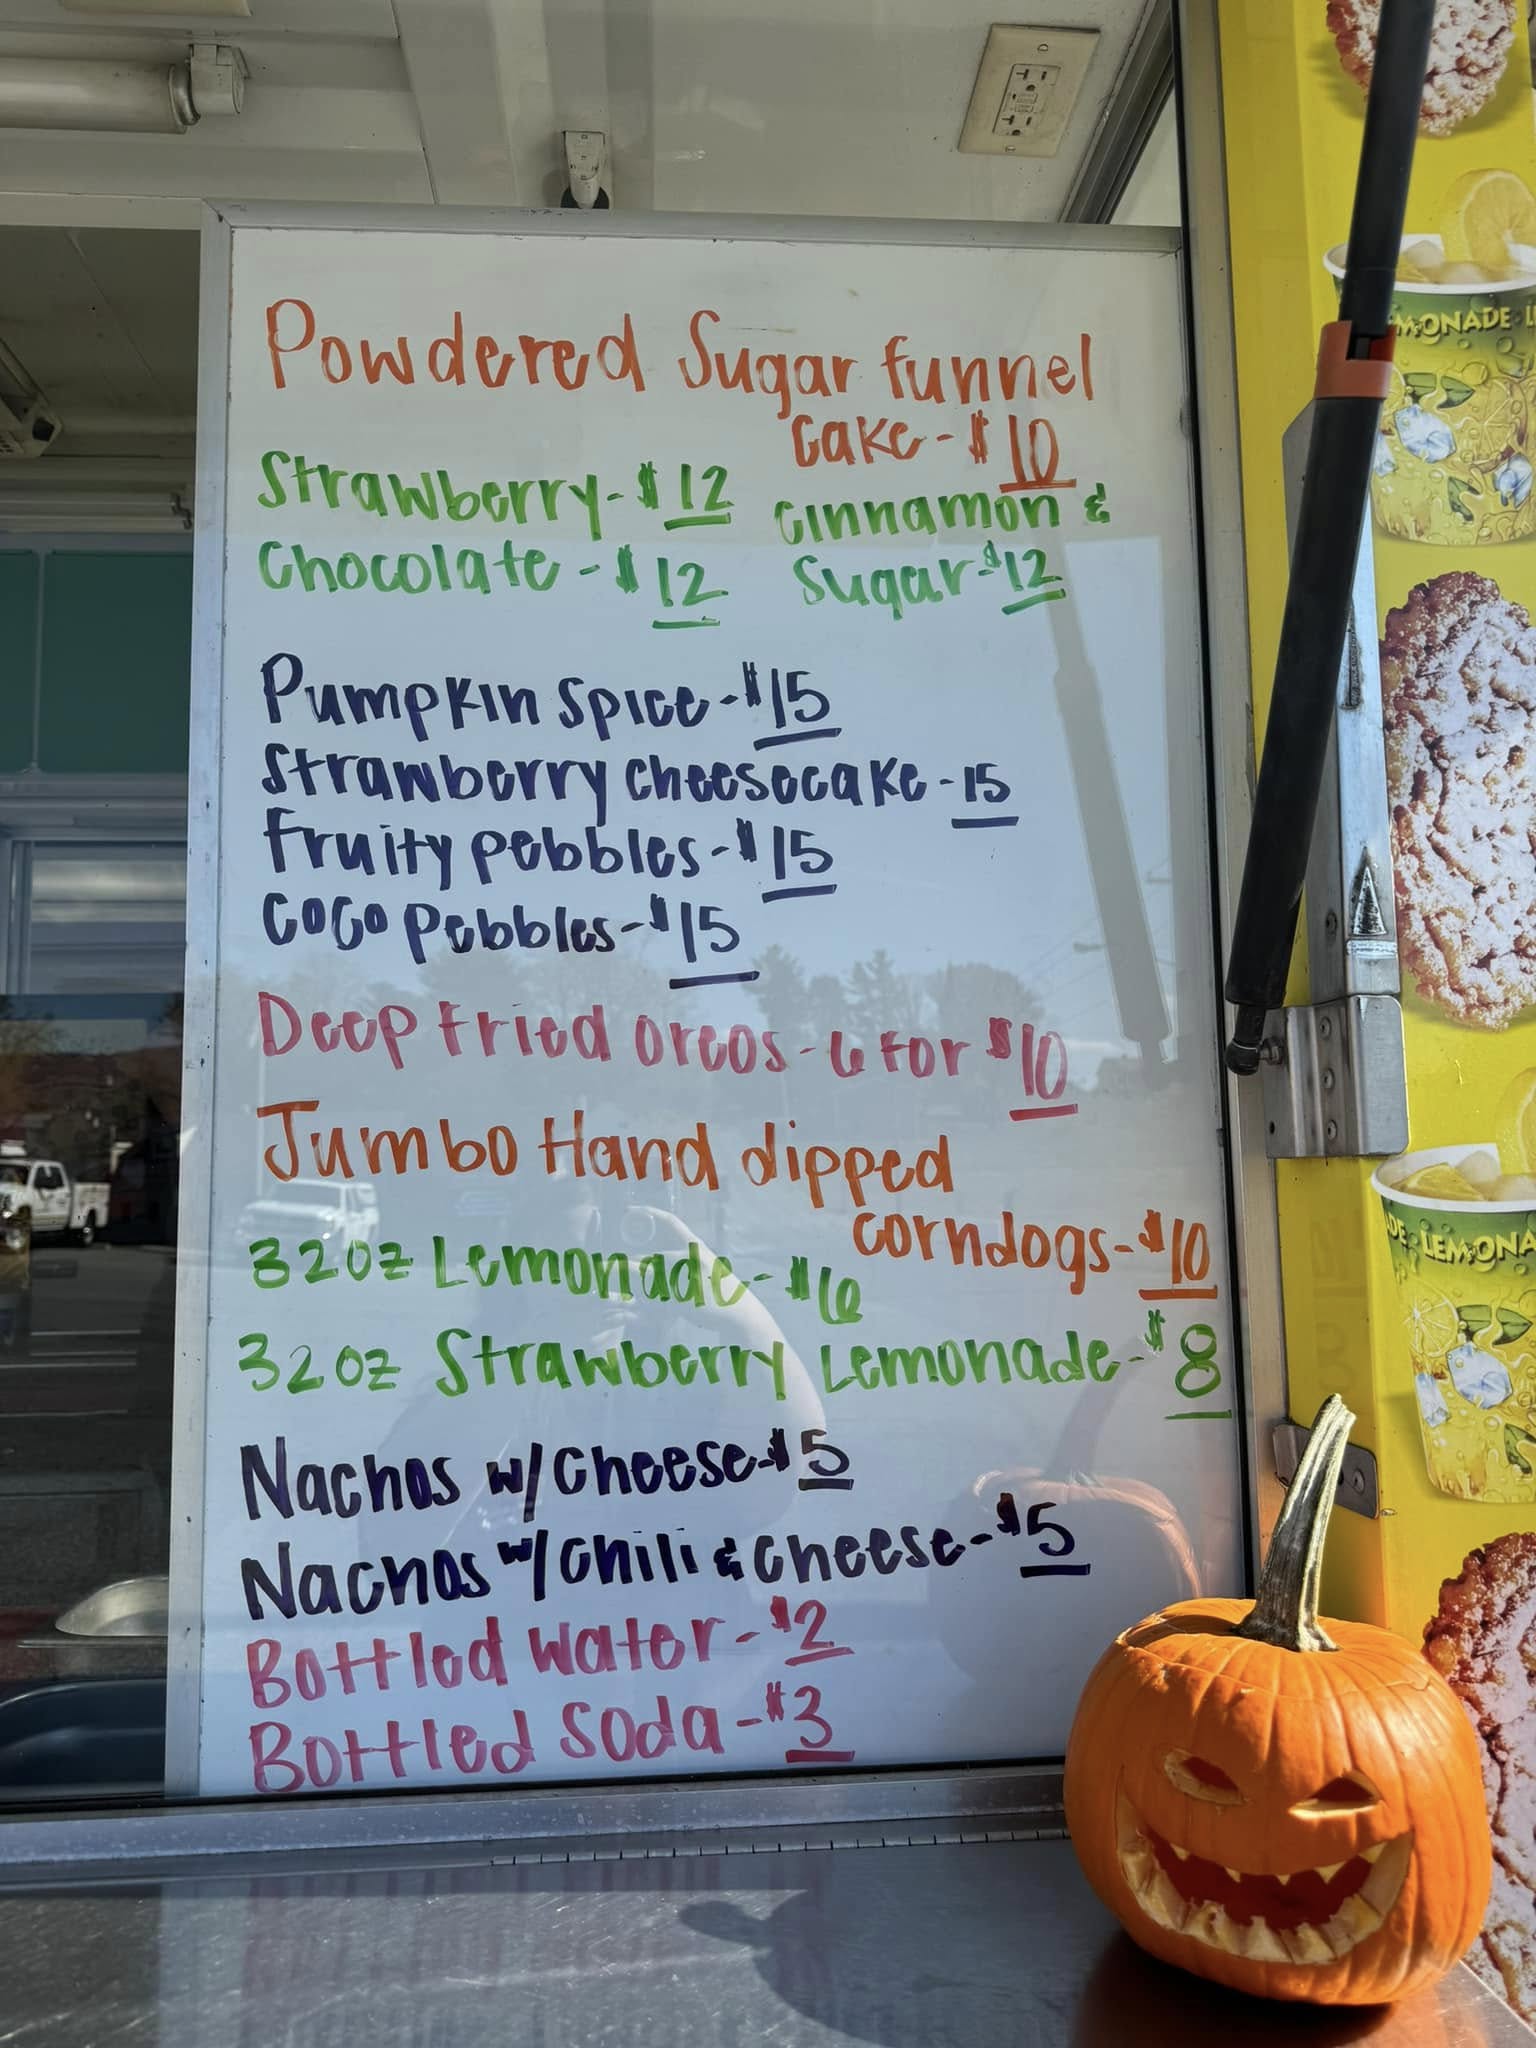 Powdered Sugar funnel
cake - $10
Strawberry - $12
Chocolate - $12
cinnamon &
Sugar - $12
Pumpkin Spice - $15
Strawberry cheesecake - 15
Fruity pebbles - $15
Coco Pebbles - $15
Deep Fried Oreos - 6 for $10
Jumbo Hand dipped
corndogs - $10
32oz Lemonade - $6
32oz Strawberry Lemonade - $8
Nachos w/ cheese - $5
Nachos w/ chili & cheese - $5
Bottled Water - $2
Bottled Soda - $3
MONADE
LEMONA